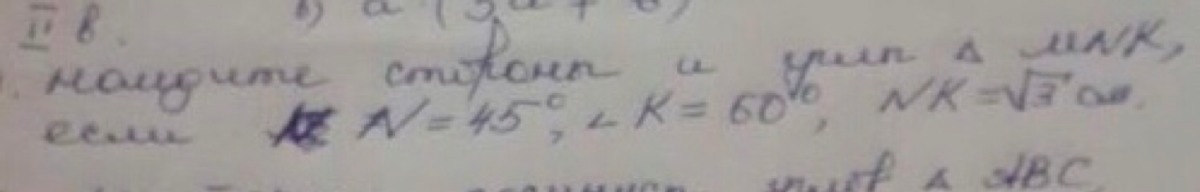 II в. б) a (3a + b)
найдите стороны и углы Δ MNK,
если N = 45°, ∠ K = 60°, NK = √3 см.
углов Δ ABC